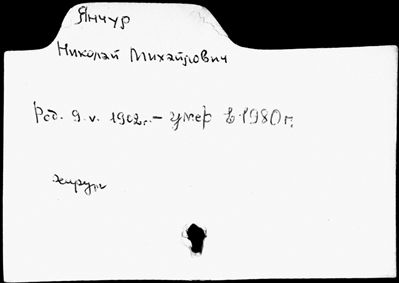 Янчур
Николай Михайлович
Род. 9.V.1902г. – умер в 1980 г.
хирург